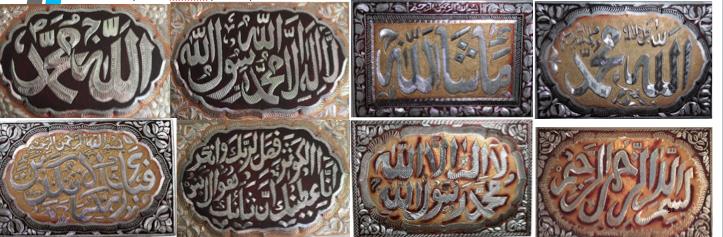 الله محمد
لا اله الا الله محمد رسول الله
ماشاالله
الله محمد
فبأي آلاء ربكما تكذبان
انا اعطينك الكوثر فصل لربك وانحر ان شانئك هو الابتر
لا اله الا الله محمد رسول الله
بسم الله الرحمن الرحيم